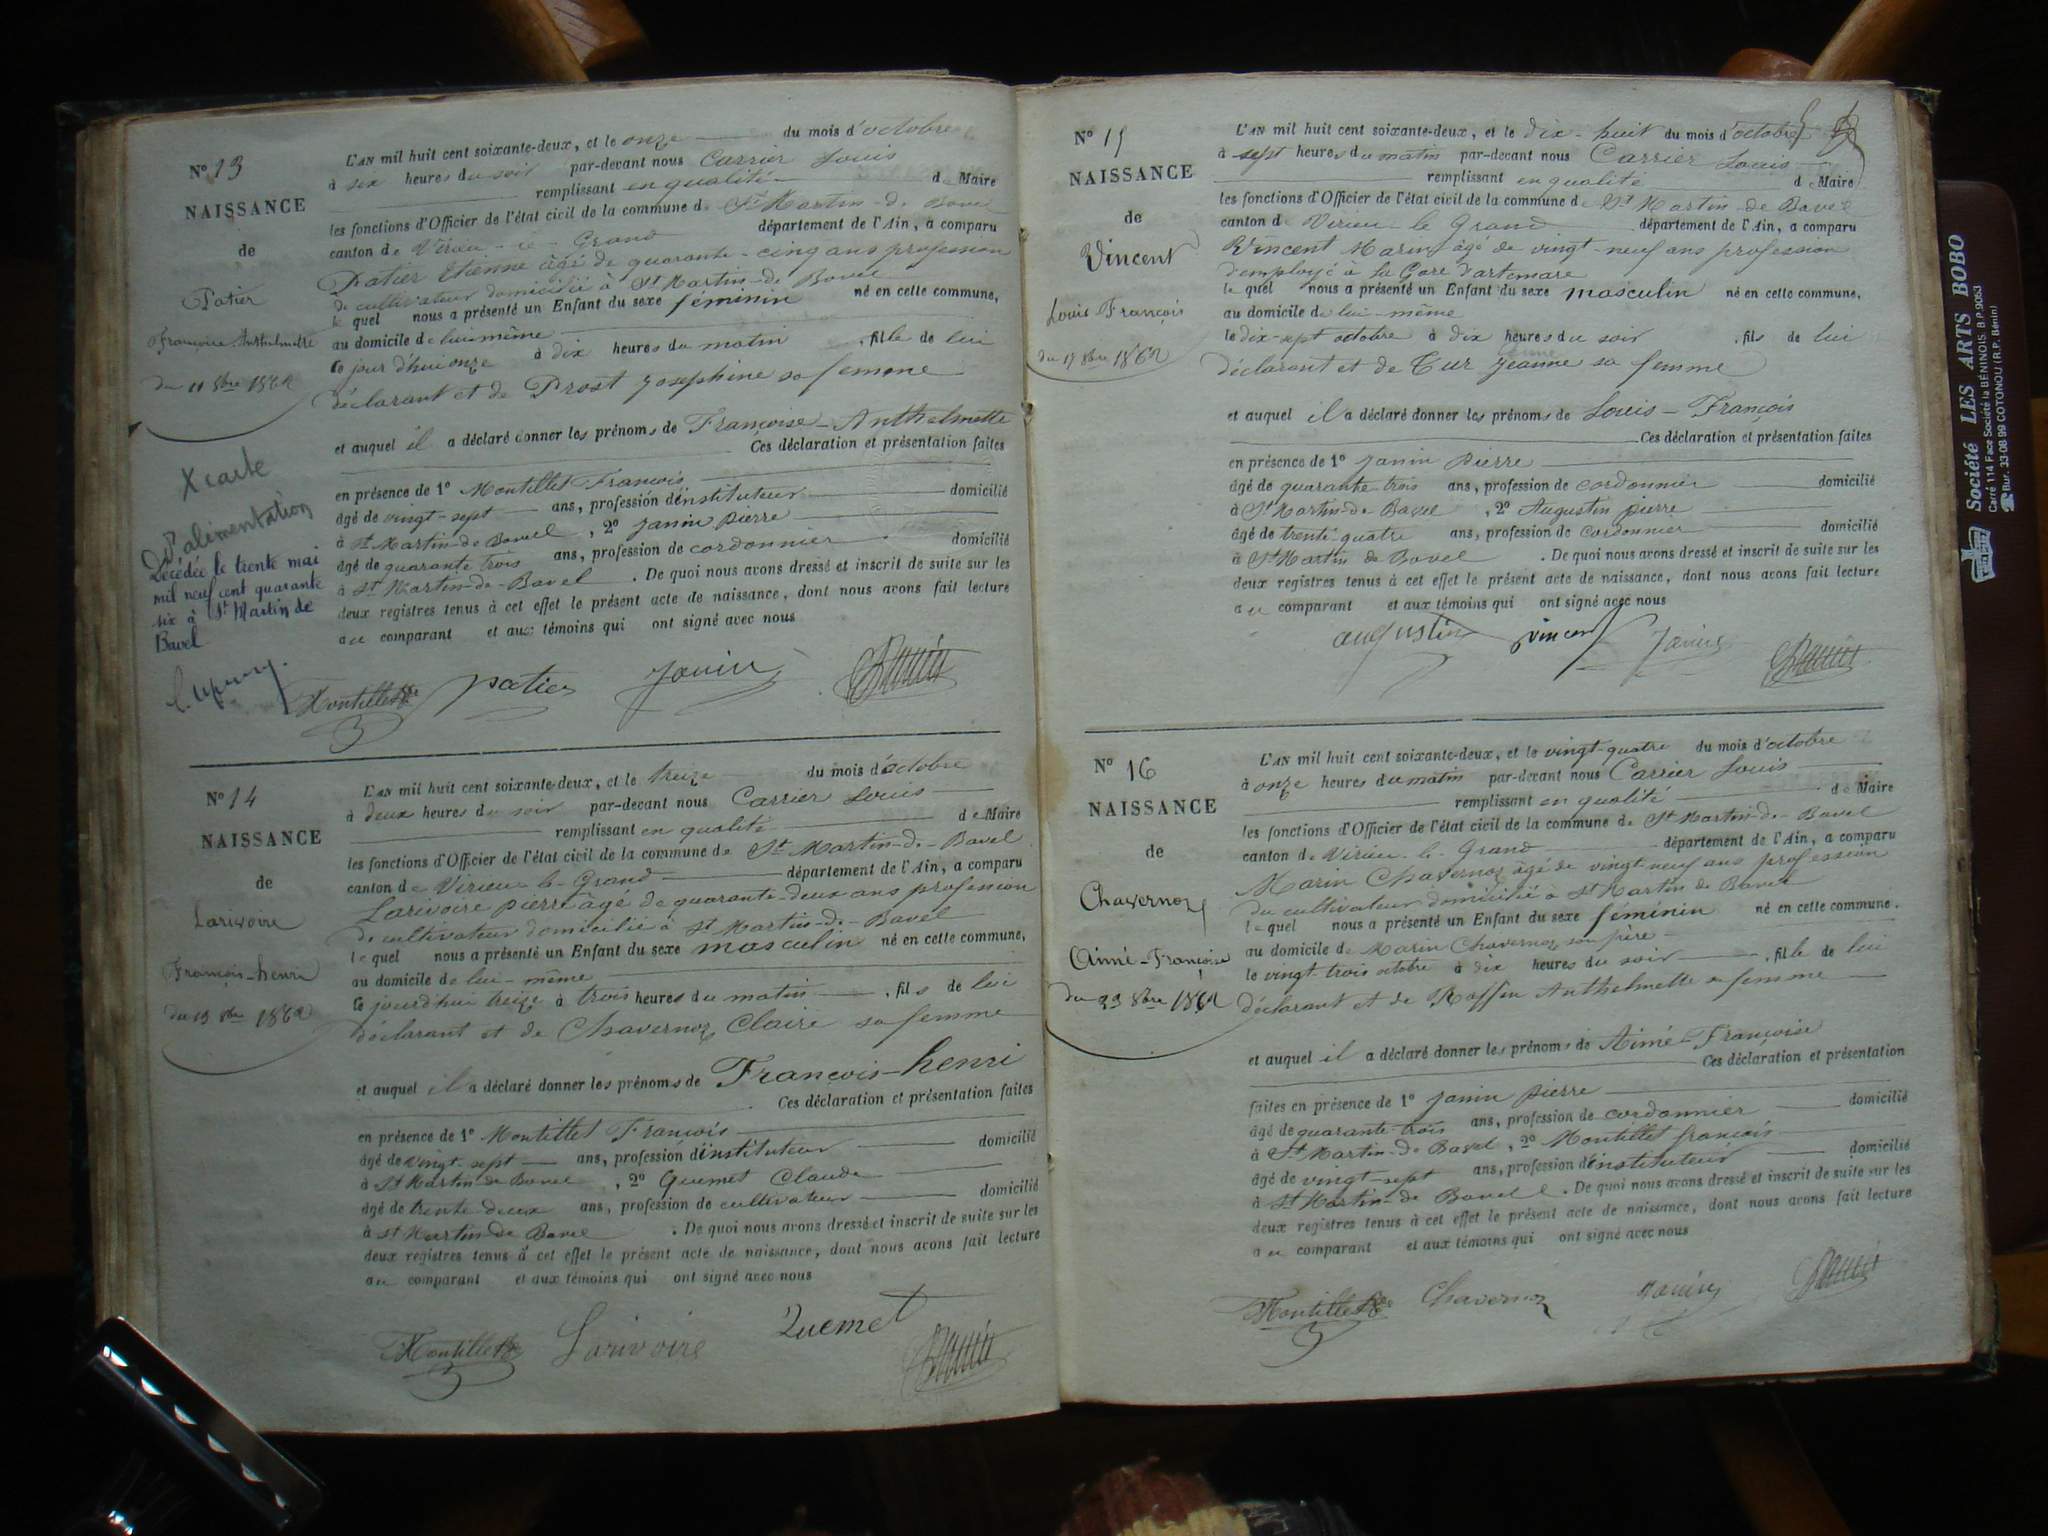 N° 13
NAISSANCE
de
Patier
Françoise Anthelmette
du 11 8bre 1862
X carte
d'alimentation
Décédée le trente mai
mil neuf cent quarante
six à St Martin de
Bavel
L'AN mil huit cent soixante-deux, et le onze du mois d'octobre
à six heures du soir par-devant nous Carrier Louis
remplissant en qualité de Maire
les fonctions d'Officier de l'état civil de la commune de St Martin-de Bavel
canton de Virieu-le-Grand département de l'Ain, a comparu
Patier Etienne âgé de quarante-cinq ans profession
de cultivateur domicilié à St Martin-de Bavel
le quel nous a présenté un Enfant du sexe féminin né en cette commune,
au domicile de lui même
ce jour d'hui onze à dix heures du matin , fille de lui
déclarant et de Prost Josephine sa femme
et auquel il a déclaré donner les prénoms de Françoise-Anthelmette
Ces déclaration et présentation faites
en présence de 1° Montillet François
âgé de vingt-sept ans, profession d'instituteur domicilié
à St Martin-de Bavel , 2° Janin pierre
âgé de quarante trois ans, profession de cordonnier domicilié
à St Martin-de-Bavel . De quoi nous avons dressé et inscrit de suite sur les
deux registres tenus à cet effet le présent acte de naissance, dont nous avons fait lecture
au comparant et aux témoins qui ont signé avec nous
Montillet patier Janin
N° 14
NAISSANCE
de
Larivoire
François-henri
du 13 8bre 1862
L'AN mil huit cent soixante-deux, et le treize du mois d'octobre
à deux heures du soir par-devant nous Carrier Louis
remplissant en qualité de Maire
les fonctions d'Officier de l'état civil de la commune de St Martin-de-Bavel
canton de Virieu le-Grand département de l'Ain, a comparu
Larivoire pierre âgé de quarante-deux ans profession
de cultivateur domicilié à St Martin-de-Bavel
le quel nous a présenté un Enfant du sexe masculin né en cette commune,
au domicile de lui-même
ce jourd'hui treize à trois heures du matin , fils de lui
déclarant et de Chavernoz Claire sa femme
et auquel il a déclaré donner les prénoms de François-henri
Ces déclaration et présentation faites
en présence de 1° Montillet François
âgé de vingt-sept ans, profession d'instituteur domicilié
à St Martin-de Bavel , 2° Quemet Claude
âgé de trente deux ans, profession de cultivateur domicilié
à St Martin-de Bavel . De quoi nous avons dressé et inscrit de suite sur les
deux registres tenus à cet effet le présent acte de naissance, dont nous avons fait lecture
au comparant et aux témoins qui ont signé avec nous
Montillet Larivoire Quemet
N° 15
NAISSANCE
de
Vincent
Louis François
du 17 8bre 1862
L'AN mil huit cent soixante-deux, et le dix-huit du mois d'octobre
à sept heures du matin par-devant nous Carrier Louis
remplissant en qualité de Maire
les fonctions d'Officier de l'état civil de la commune de St Martin-de Bavel
canton de Virieu-le Grand département de l'Ain, a comparu
Vincent Marin âgé de vingt-neuf ans profession
d'employé à la Gare d'artemare
le quel nous a présenté un Enfant du sexe masculin né en cette commune,
au domicile de lui-même
le dix-sept octobre à dix heures du soir , fils de lui
déclarant et de Tur Jeanne sa femme
et auquel il a déclaré donner les prénoms de Louis-François
Ces déclaration et présentation faites
en présence de 1° Janin pierre
âgé de quarante trois ans, profession de cordonnier domicilié
à St Martin-de Bavel , 2° Augustin pierre
âgé de trente-quatre ans, profession de cordonnier domicilié
à St Martin de Bavel . De quoi nous avons dressé et inscrit de suite sur les
deux registres tenus à cet effet le présent acte de naissance, dont nous avons fait lecture
au comparant et aux témoins qui ont signé avec nous
augustin vincent Janin
N° 16
NAISSANCE
de
Chavernoz
Aimé-Françoise
du 23 8bre 1862
L'AN mil huit cent soixante-deux, et le vingt-quatre du mois d'octobre
à onze heures du matin par-devant nous Carrier Louis
remplissant en qualité de Maire
les fonctions d'Officier de l'état civil de la commune de St Martin-de-Bavel
canton de Virieu-le-Grand département de l'Ain, a comparu
Marin Chavernoz âgé de vingt-neuf ans profession
de cultivateur domicilié à St Martin de Bavel
le quel nous a présenté un Enfant du sexe féminin né en cette commune.
au domicile de Marin Chavernoz son père
le vingt-trois octobre à dix heures du soir , fille de lui
déclarant et de Anthelmette sa femme
et auquel il a déclaré donner les prénoms de Aimé-Françoise
Ces déclaration et présentation
faites en présence de 1° Janin pierre
âgé de quarante-trois ans, profession de cordonnier domicilié
à St Martin-de Bavel , 2° Montillet françois
âgé de vingt-sept ans, profession d'instituteur domicilié
à St Martin-de Bavel . De quoi nous avons dressé et inscrit de suite sur les
deux registres tenus à cet effet le présent acte de naissance, dont nous avons fait lecture
au comparant et aux témoins qui ont signé avec nous
Montillet Chavernoz Janin
Société LES ARTS BOBO
Carré 114 Face Société la BÉNINOIS. B.P.9053
☎ Bur. 33-08 99 COTONOU (R.P. Bénin)